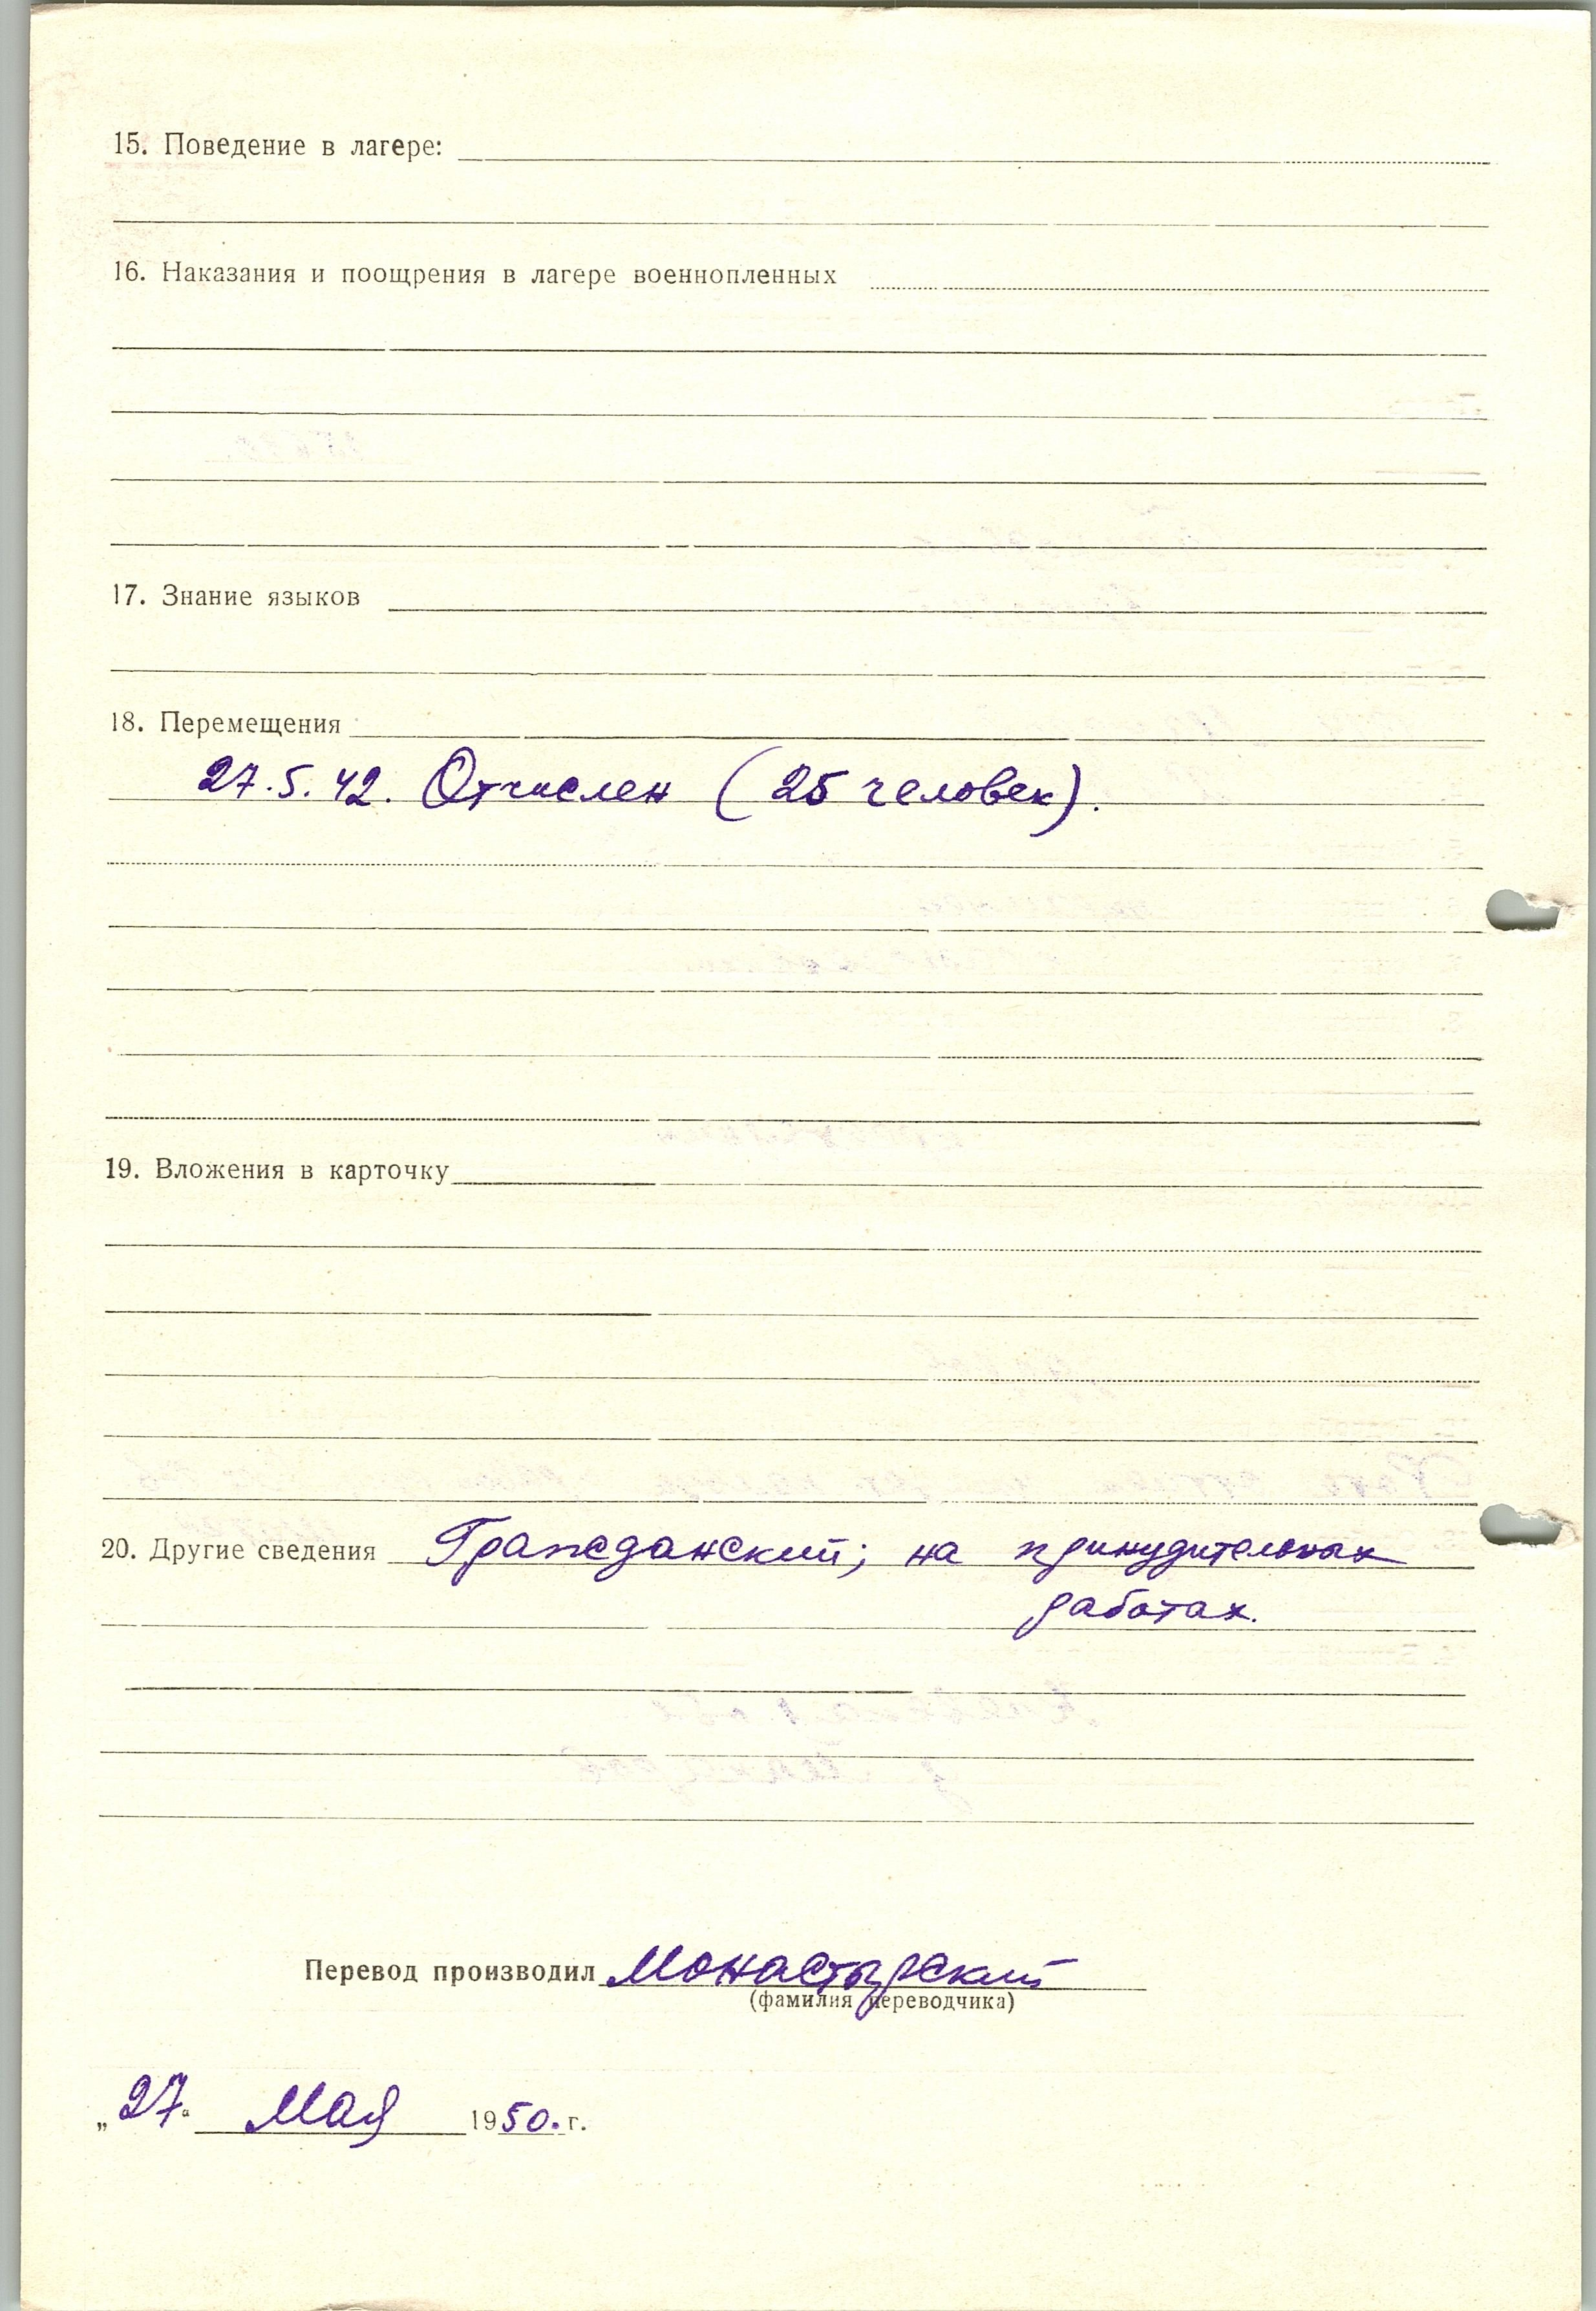 15. Поведение в лагере:
16. Наказания и поощрения в лагере военнопленных
17. Знание языков
18. Перемещения
27.5.42. Отчислен (25 человек).
19. Вложения в карточку
20. Другие сведения Гражданский; на принудительных
работах.
Перевод производил Монастырский
(фамилия переводчика)
„27“ Мая 1950. г.